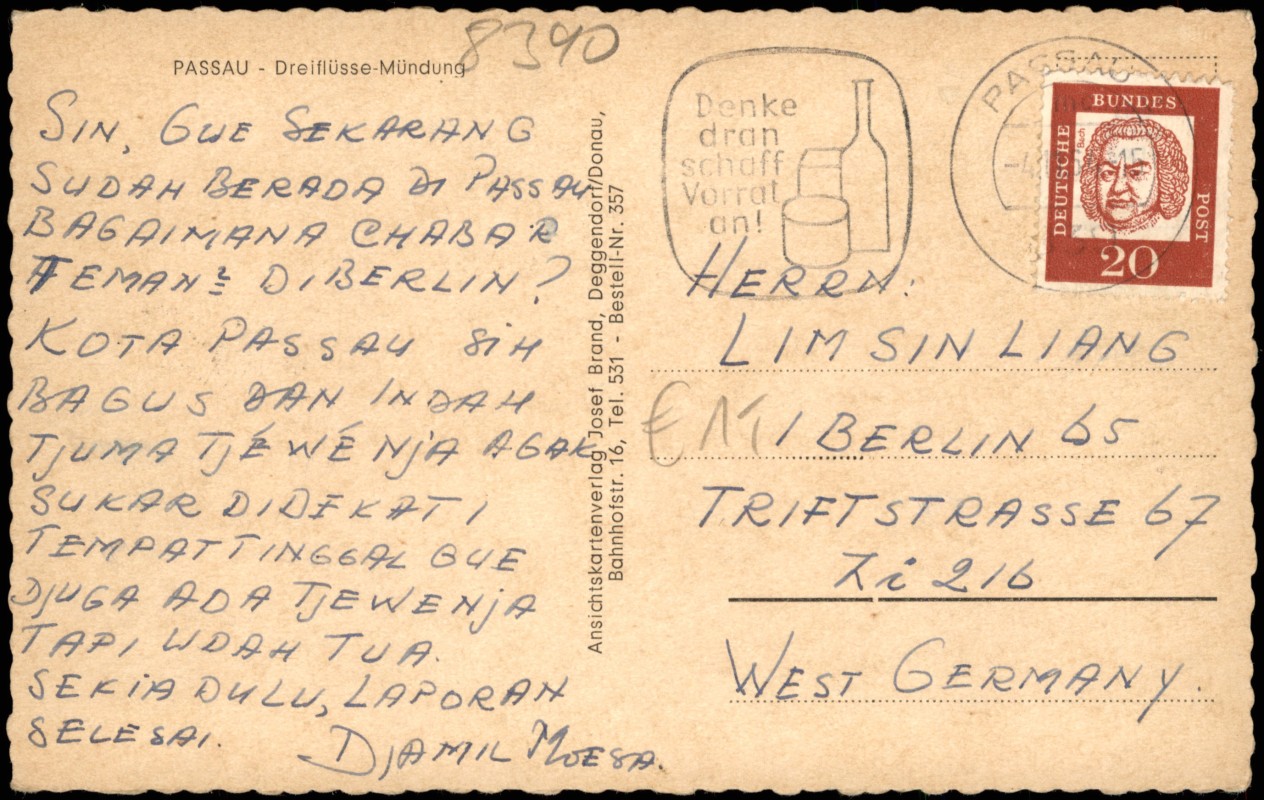 8390
PASSAU - Dreiflüsse-Mündung
SIN, GUE SEKARANG
SUDAH BERADA DI PASSAU
BAGAIMANA CHABAR
TEMAN2 DIBERLIN?
KOTA PASSAU SIH
BAGUS DAN INDAH
TJUMA TJÉWÉNJA AGAK
SUKAR DIDEKATI
TEMPAT TINGGAL GUE
DJUGA ADA TJEWENJA
TAPI UDAH TUA.
SEKIA DULU, LAPORAN
SELESAI.
DJAMIL MOESA.
Ansichtskartenverlag Josef Brand, Deggendorf/Donau,
Bahnhofstr. 16, Tel. 531 - Bestell-Nr. 357
Denke
dran
schaff
Vorrat
an!
PASSAU
DEUTSCHE
BUNDES
POST
Bach
20
HERRN:
LIM SIN LIANG
1 BERLIN 65
TRIFTSTRASSE 67
Zi 216
WEST GERMANY.